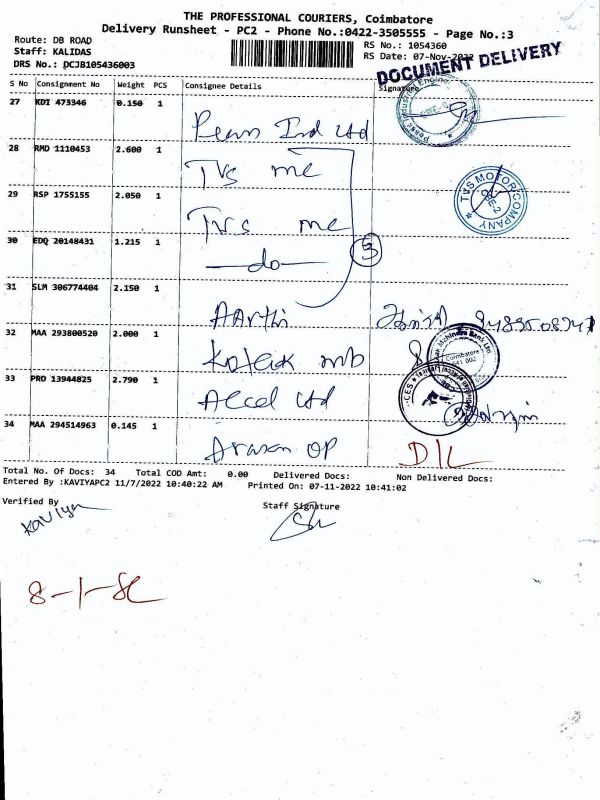 THE PROFESSIONAL COURIERS, Coimbatore
Delivery Runsheet - PC2 - Phone No.:0422-3505555 - Page No.:3
Route: DB ROAD
RS No.: 1054360
Staff: KALIDAS
RS Date: 07-Nov-2022
DRS No.: DCJB105436003
DOCUMENT DELIVERY
S No Consignment No Weight PCS Consignee Details Signature
27 KDI 473346 0.150 1
Ind Ltd
28 RMD 1110453 2.600 1
TVS mc
29 RSP 1755155 2.050 1
TVS mc
TVS MOTOR COMPANY
30 EDQ 20148431 1.215 1
do
3
31 SLM 306774404 2.150 1
AArthi
32 MAA 293800520 2.000 1
Kotak mb
Mahindra Bank Ltd
Coimbatore
641 002
33 PRO 13944825 2.790 1
Accel Ltd
34 MAA 294514963 0.145 1
Arasan OP D/L
Total No. Of Docs: 34 Total COD Amt: 0.00 Delivered Docs: Non Delivered Docs:
Entered By :KAVIYAPC2 11/7/2022 10:40:22 AM Printed On: 07-11-2022 10:41:02
Verified By Staff Signature
Kaviya
8-1-